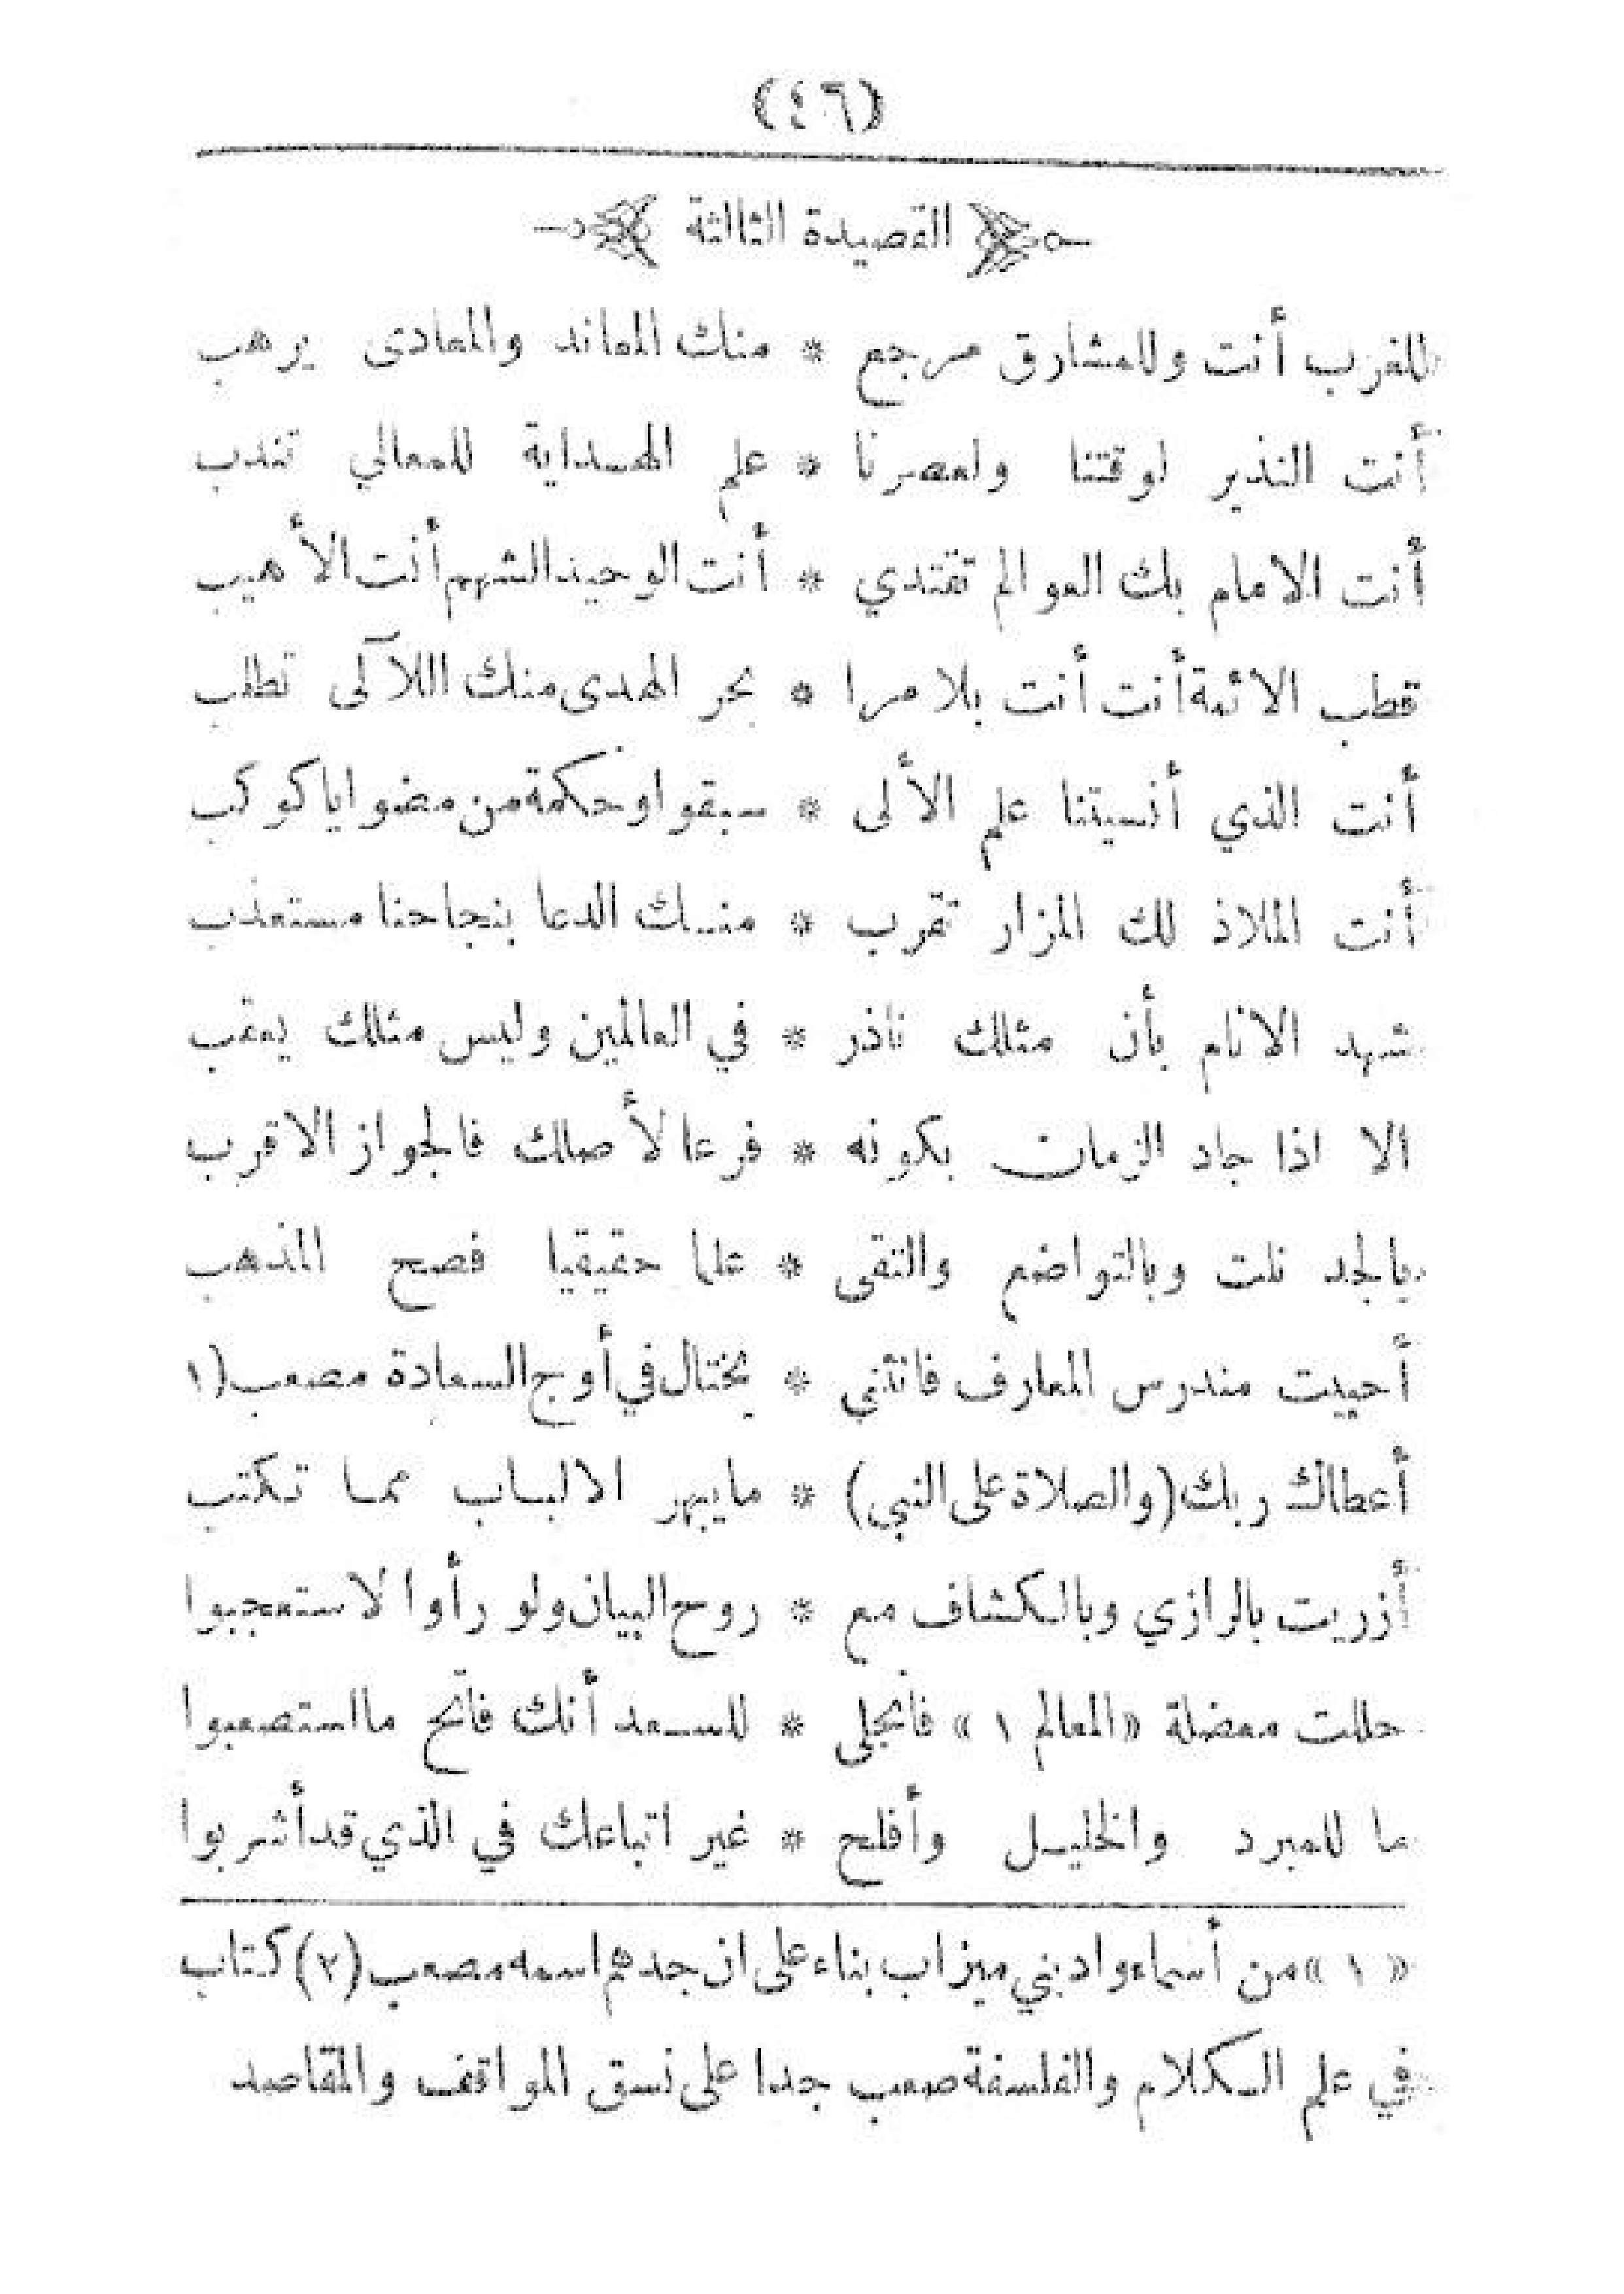 (٤٦)
القصيدة الثالثة
للغرب أنت وللمشارق مرجع * منك المعاند والمعادى يرهب
أنت النذير لوقتنا ولعصرنا * علم الهداية للمعالي تندب
أنت الامام بك العوالم تقتدي * أنت الوحيد الشهم أنت الأهيب
قطب الائمة أنت أنت بلا مرا * بحر الهدى منك اللآلى تطلب
أنت الذي أنسيتنا علم الألى * سبقوا وحكمة من مضوا ياكوكب
أنت الملاذ لك المزار تقرب * منك الدعا بنجاحنا مستعذب
شهد الانام بأن مثلك نادر * في العالمين وليس مثلك يعقب
الا اذا جاد الزمان بكونه * فرعا لأصلك فالجواز الاقرب
بالجد نلت وبالتواضع والتقى * علما حقيقيا فصح المذهب
أحييت مندرس المعارف فانثنى * يختال في أوج السعادة مصعب(١
أعطاك ربك (والصلاة على النبي) * مايبهر الالباب مما تكتب
أزريت بالرازي وبالكشاف مع * روح البيان ولو رأوا لاستعجبوا
حللت معضلة «المعالم ١» فانجلى * للسعد أنك فاتح مااستصعبوا
ما للمبرد والخليل وأفلح * غير اتباعك في الذي قد أشربوا
«١» من أسماء واد بني ميزاب بناء على ان جدهم اسمه مصعب (٢) كتاب
في علم الكلام والفلسفة صعب جدا على نسق المواقف والمقاصد